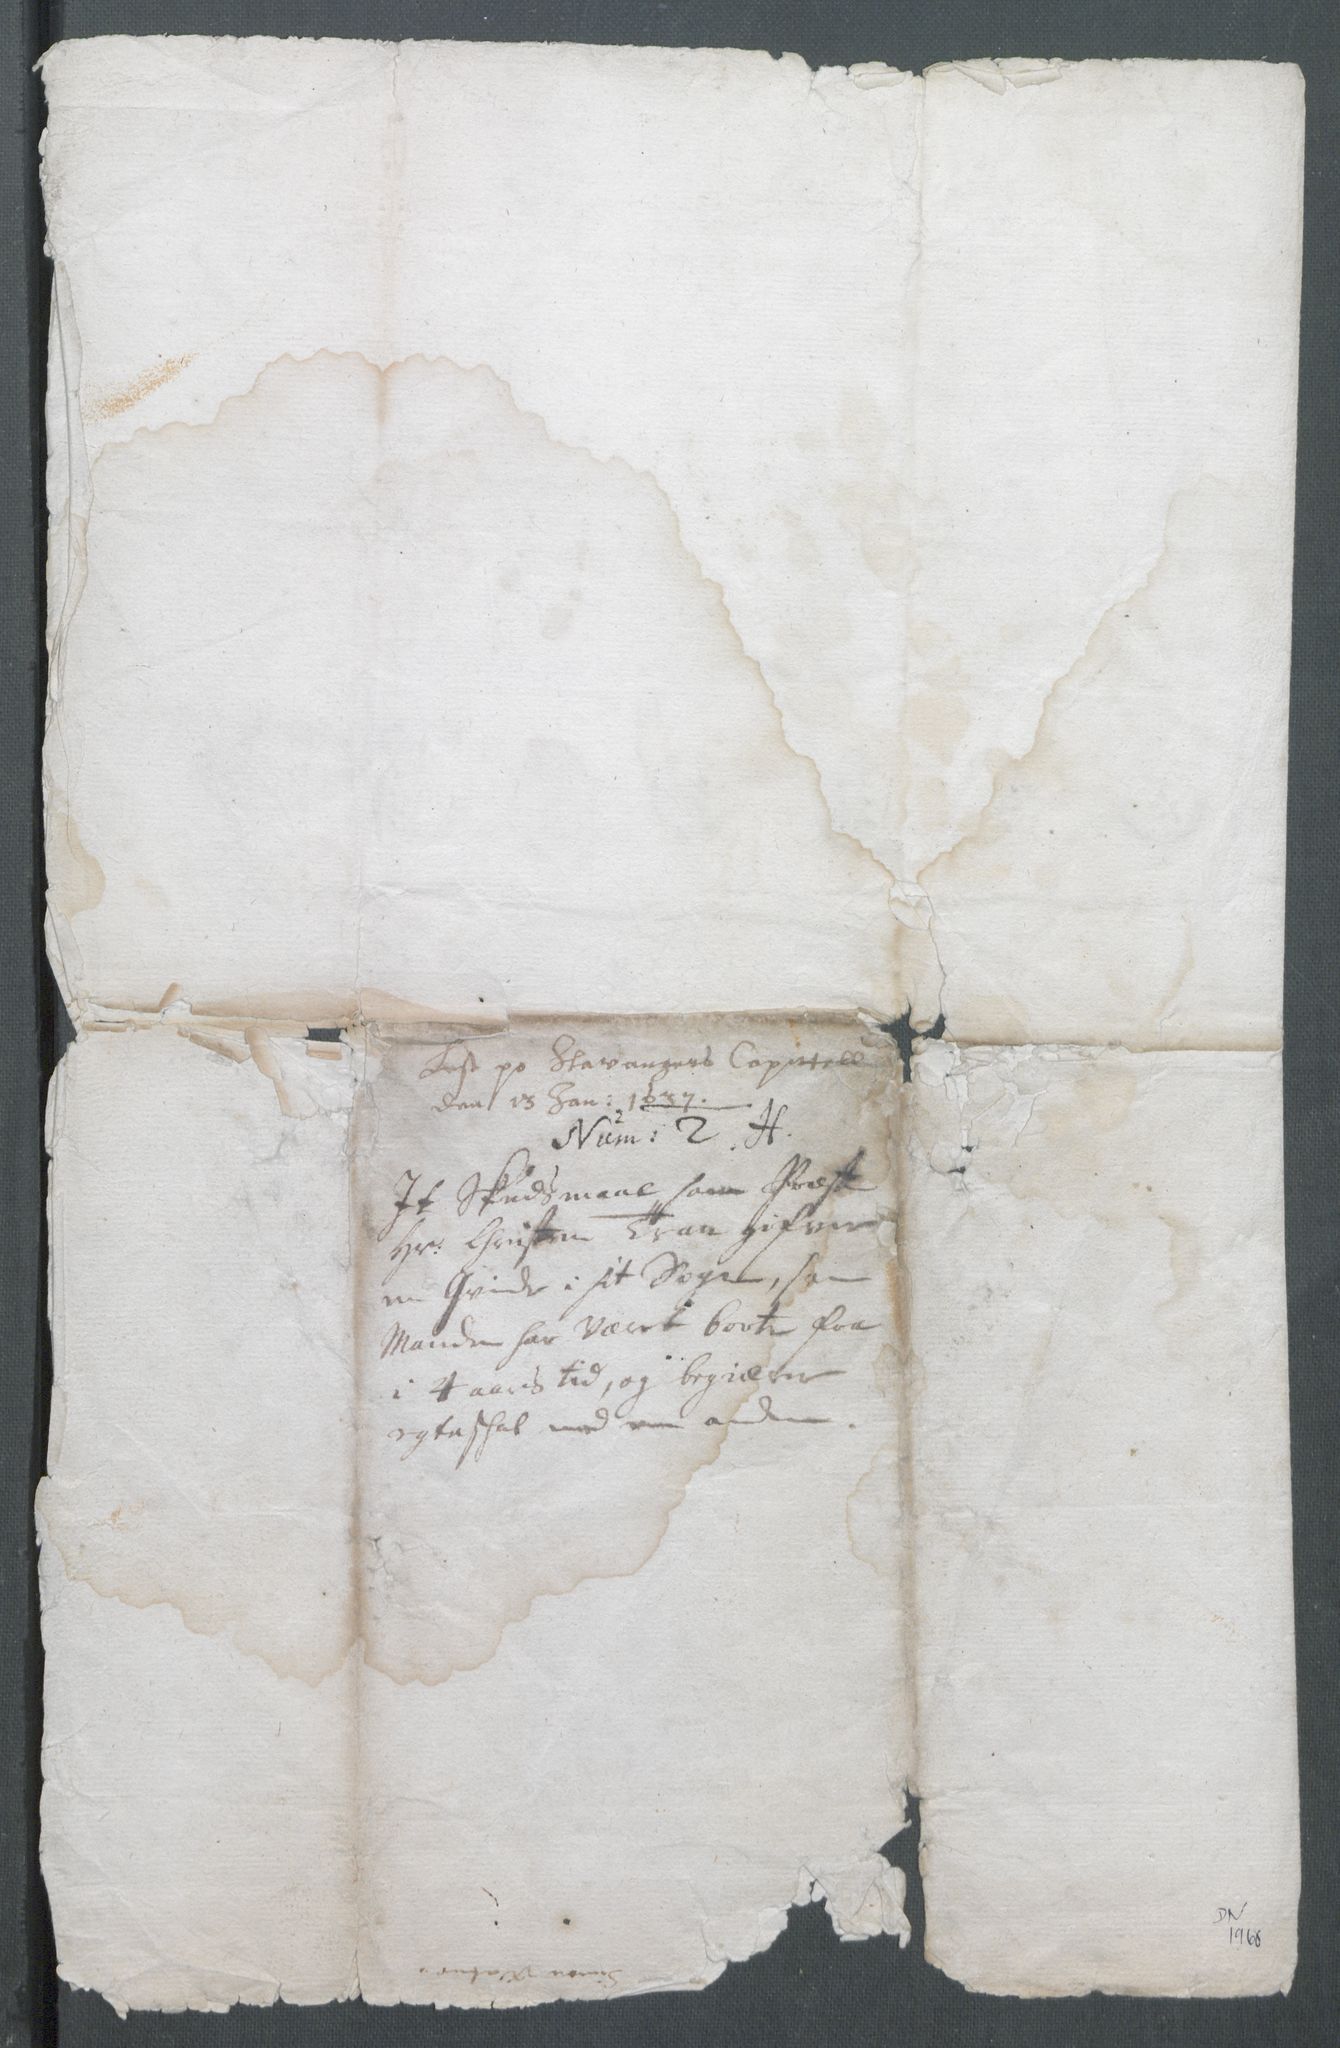 Lest po Stavangers Capittell
den 13 Jan: 1637.
Num: 2 H.
It Skudsmaal som Præst
Hr: Christen Tran gifver
en Qvinde i sit Sogn, som
Manden har været borte fra
i 4 aars tid, og begierer
egteskab med een anden.
Simon
DN
1968